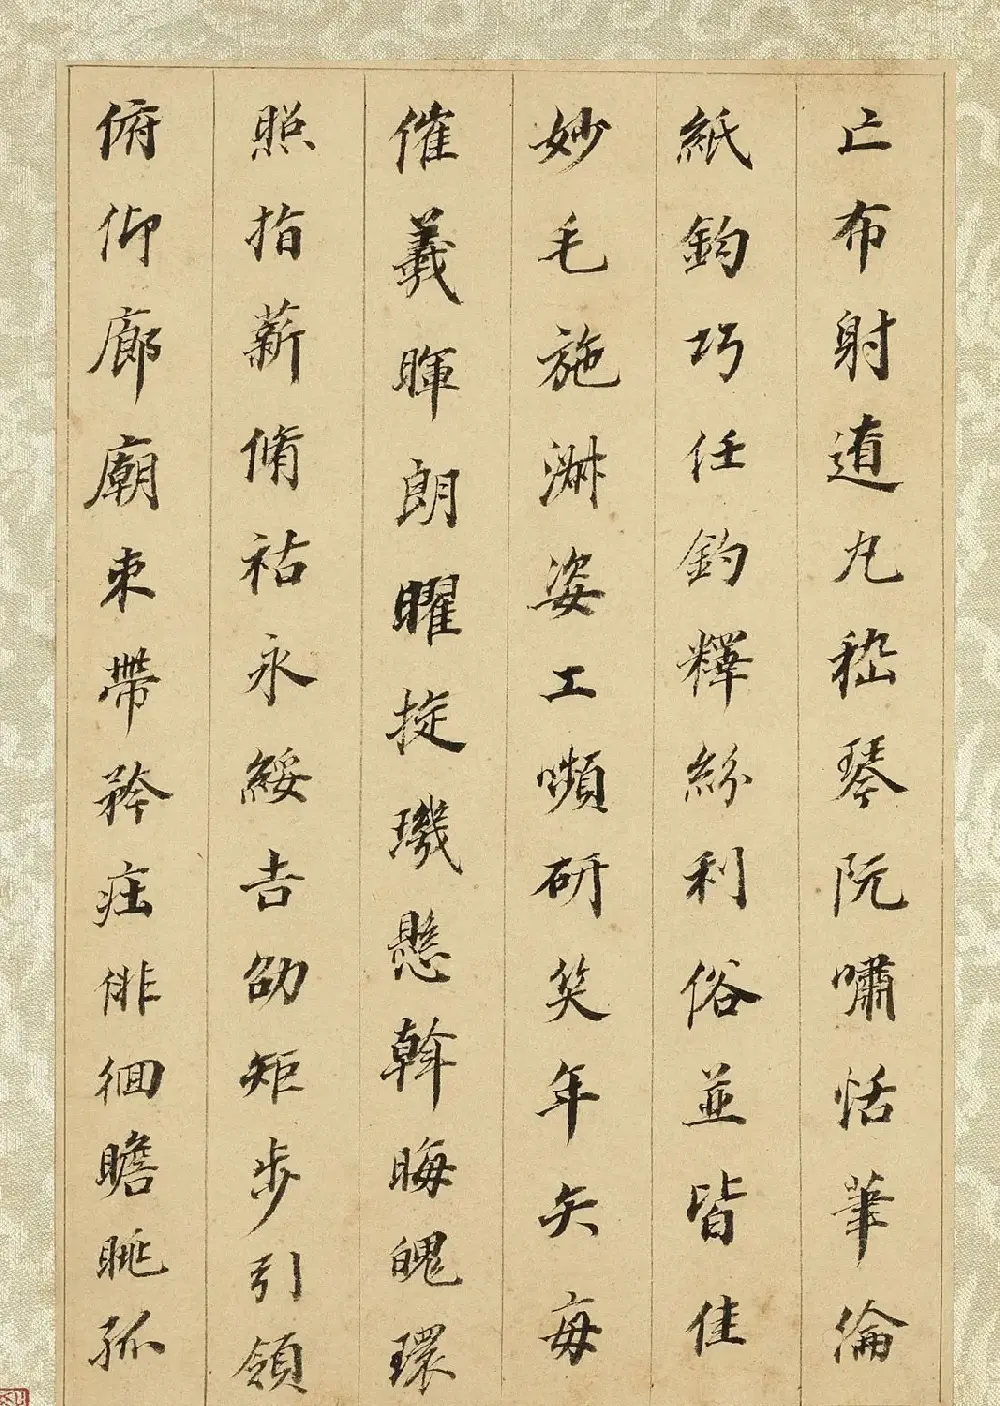 亡布射遼丸嵇琴阮嘯恬筆倫
紙鈞巧任釣釋紛利俗並皆佳
妙毛施淑姿工嚬研笑年矢每
催羲暉朗曜旋璣懸斡晦魄環
照指薪脩祜永綏吉劭矩步引領
俯仰廊廟束帶矜莊徘徊瞻眺孤